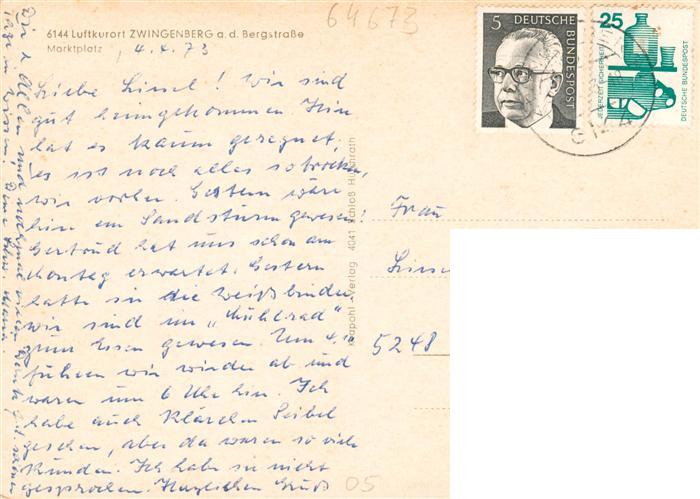 64673
6144 Luftkurort ZWINGENBERG a. d. Bergstraße
Marktplatz
4.4.73
Liebe Liesel! Wir sind
gut heimgekommen. Hin
hat es kaum geregnet,
es ist noch alles so trocken,
wie vorher. Gestern wäre
hin ein Sandsturm gewesen!
Gertrud hat uns schon am
Montag erwartet. Gestern
hatte sie die Weißbinder,
wir sind im "Mühlrad"
zum Essen gewesen. Um 4.10
fuhren wir wieder ab und
waren um 6 Uhr hin. Ich
habe auch Klärchen Seibel
gesehen, aber da waren so viele
Kunden. Ich habe sie nicht
gesprochen. Herzlichen Gruß
Dir & Allen und nochmal vielen Dank f. d. schönen
Tage in Wissen! Deine
Krapohl-Verlag 4041 Schloß Hülchrath
5
DEUTSCHE
BUNDESPOST
25
JEDERZEIT SICHERHEIT
DEUTSCHE BUNDESPOST
Frau
Liesel
5248
05